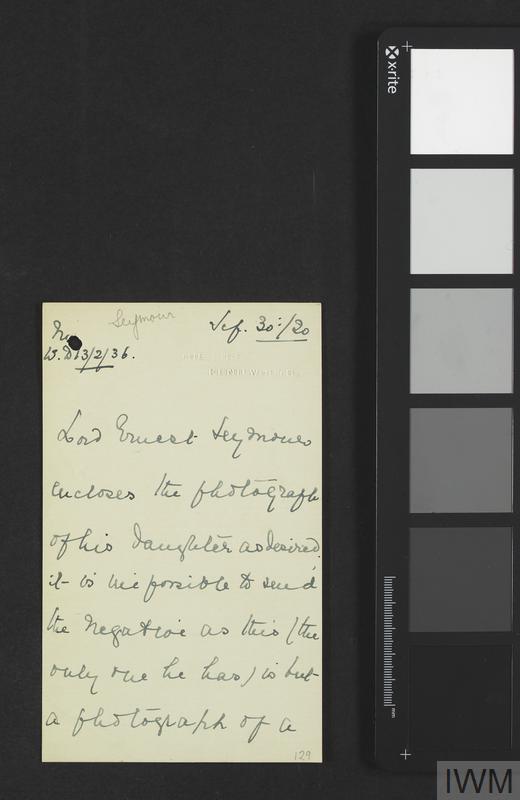 Seymour
Sep. 30:/20
No
W.D 13/2/36.
KENILWORTH.
Lord Ernest Seymour
encloses the photograph
of his daughter as desired,
it is impossible to send
the Negative as this (the
only one he has) is but
a photograph of a
129
x·rite
mm
IWM